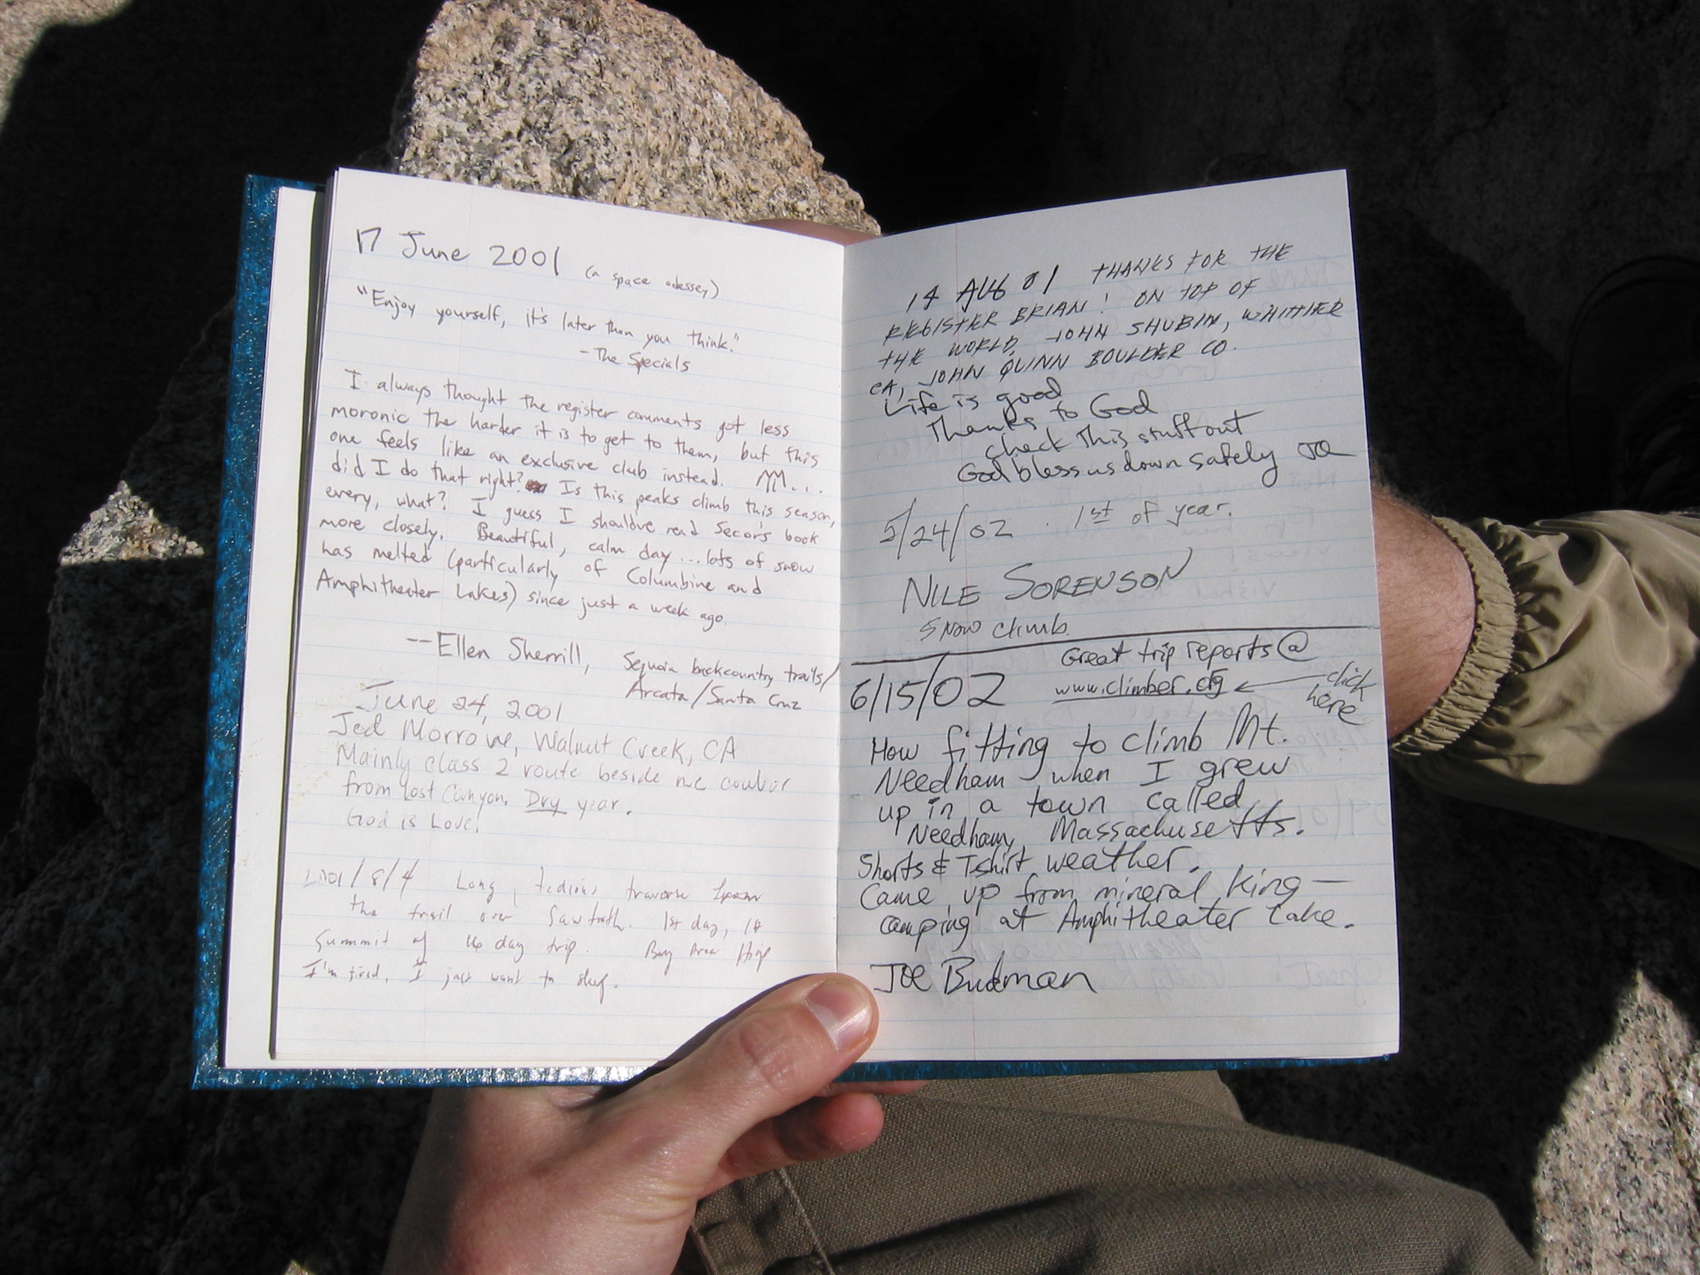 17 June 2001 (a space odessey)
"Enjoy yourself, it's later than you think."
-The Specials
I always thought the register comments got less
moronic the harder it is to get to them, but this
one feels like an exclusive club instead. ...
did I do that right? Is this peaks climb this season,
every, what? I guess I shouldve read Secor's book
more closely. Beautiful, calm day ...lots of snow
has melted (particularly of Columbine and
Amphitheater Lakes) since just a week ago.
--Ellen Sherrill, Sequoia backcountry trails/
Arcata/Santa Cruz
June 24, 2001
Jed Morrow, Walnut Creek, CA
Mainly class 2 route beside
from Lost Canyon. Dry year.
God is Love!
2001/8/4 Long, tedious traverse from
the trail over Sawtooth. 1st day, 1st
Summit of 16 day trip. Bay Area
I'm tired. I just want to sleep.
14 AUG 01 THANKS FOR THE
REGISTER BRIAN! ON TOP OF
THE WORLD. JOHN SHUBIN, WHITTIER
CA, JOHN QUINN BOULDER CO.
Life is good
Thanks to God
check this stuff out
God bless us down safely Joe
5/24/02 . 1st of year.
NILE SORENSON
SNOW climb
6/15/02 Great trip reports @
www.climber.org click
here
How fitting to climb Mt.
Needham when I grew
up in a town called
Needham, Massachusetts.
Shorts & T-shirt weather.
Came up from mineral King—
camping at Amphitheater Lake.
Joe Budman